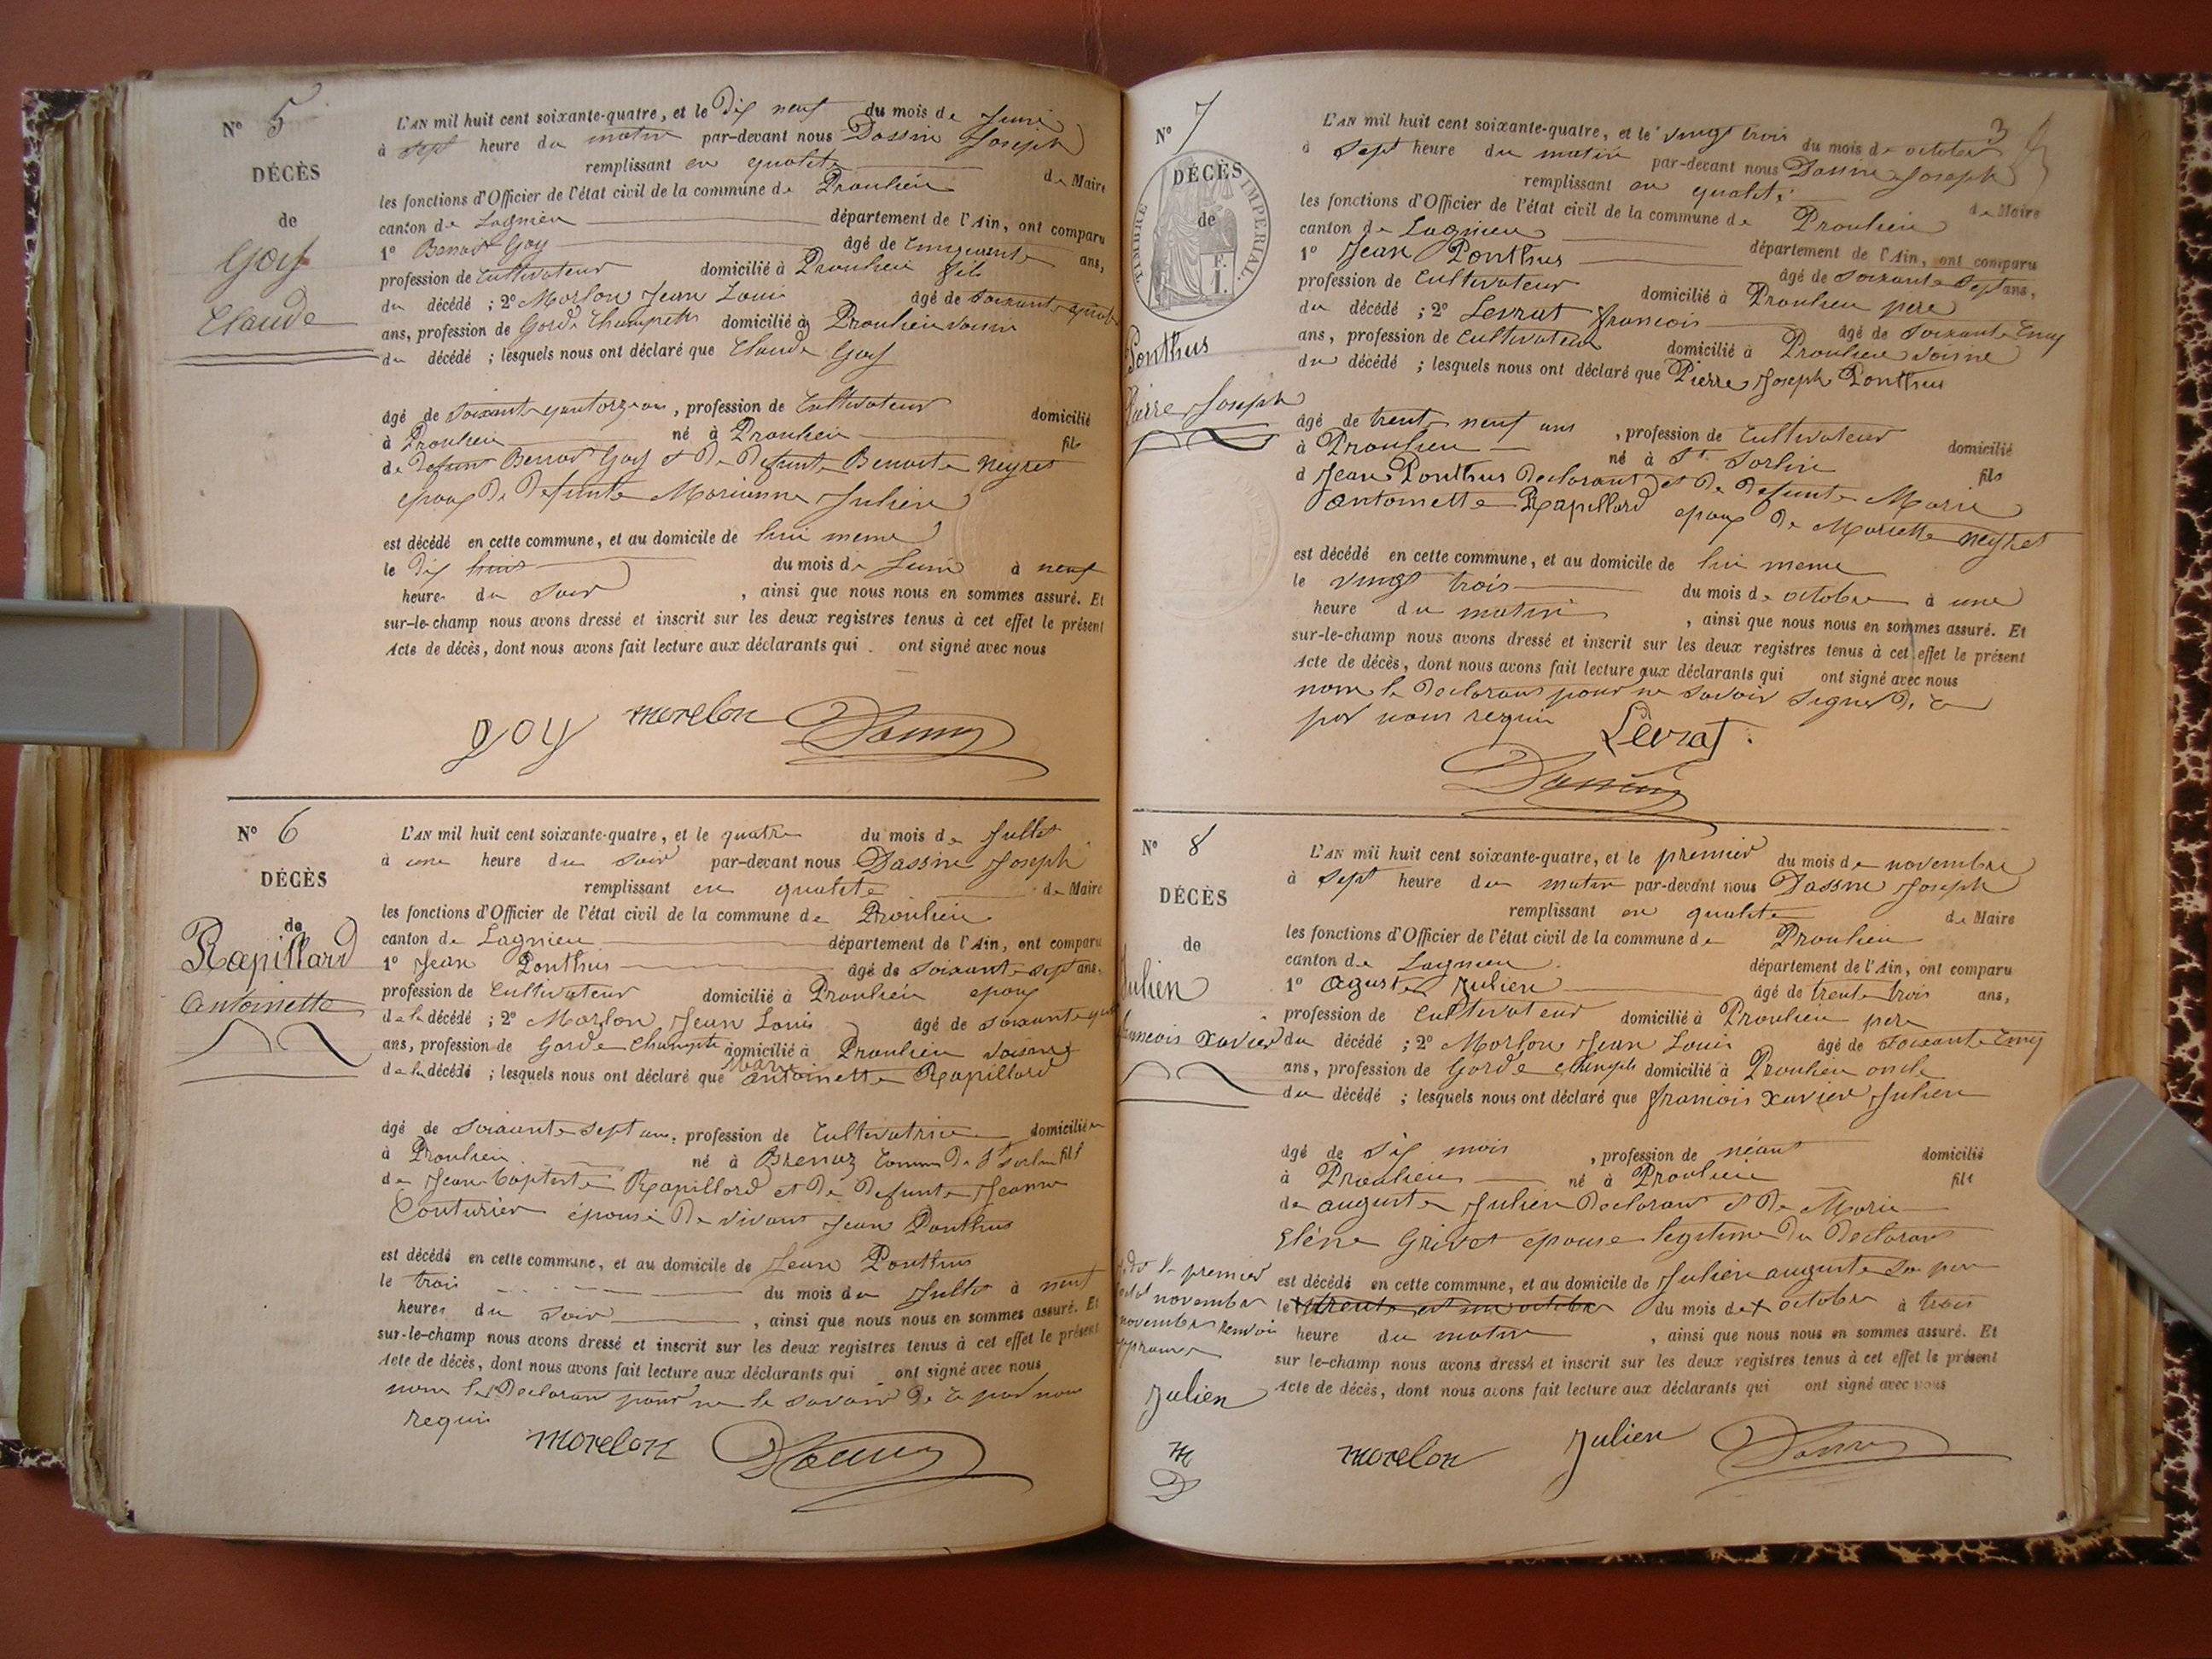 N° 5
DÉCÈS
de
Goy
Claude
L'AN mil huit cent soixante-quatre, et le Dix neuf du mois de Juin
à sept heure du matin par-devant nous Dassin Joseph
remplissant en qualite de Maire
les fonctions d'Officier de l'état civil de la commune de Proulieu
canton de Lagnieu département de l'Ain, ont comparu
1° Benoit Goy âgé de Cinquante ans,
profession de Cultivateur domicilié à Proulieu fils
du décédé ; 2° Morlon Jean Loui âgé de soixante quatr
ans, profession de Garde Champetre domicilié à Proulieu voisin
du décédé ; lesquels nous ont déclaré que Claude Goy
âgé de soixante quatorze ans, profession de Cultivateur domicilié
à Proulieu né à Proulieu fils
de Defunt Benoit Goy et De Defunte Benoite Neyret
epoux De Defunte Marianne Julien
est décédé en cette commune, et au domicile de lui meme
le Dix huit du mois de Juin à neuf
heures du soir, ainsi que nous nous en sommes assuré. Et
sur-le-champ nous avons dressé et inscrit sur les deux registres tenus à cet effet le présent
Acte de décès, dont nous avons fait lecture aux déclarants qui ont signé avec nous
goy morelon Dassin
N° 6
DÉCÈS
de
Rapillard
Antoinette
L'AN mil huit cent soixante-quatre, et le quatre du mois de Jullet
à une heure du soir par-devant nous Dassin Joseph
remplissant en qualite de Maire
les fonctions d'Officier de l'état civil de la commune de Proulieu
canton de Lagnieu département de l'Ain, ont comparu
1° Jean Ponthus âgé de soixante sept ans,
profession de Cultivateur domicilié à Proulieu epoux
de la décédé ; 2° Morlon Jean Louis âgé de soixante
ans, profession de Garde Champtre domicilié à Proulieu voisin
de la décédé ; lesquels nous ont déclaré que Marie antoinette Rapillard
âgé de soixante sept ans, profession de Cultivatrice domiciliée
à Proulieu né à Brenaz Commune De St Sorlin fils
de Jean Baptiste Rapillard et De Defunte Jeanne
Couturier épouse De vivant Jean Ponthus
est décédé en cette commune, et au domicile de Jean Ponthus
le trois du mois de Jullet à neuf
heures du soir, ainsi que nous nous en sommes assuré. Et
sur-le-champ nous avons dressé et inscrit sur les deux registres tenus à cet effet le présent
Acte de décès, dont nous avons fait lecture aux déclarants qui ont signé avec nous
non le Declarant pour ne le savoir De ce par nous
requis
morelon Dassin
3
N° 7
DÉCÈS
de
TIMBRE IMPERIAL
Ponthus
Pierre Joseph
L'AN mil huit cent soixante-quatre, et le vingt trois du mois de octobre
à sept heure du matin par-devant nous Dassin Joseph
remplissant en qualité de Maire
les fonctions d'Officier de l'état civil de la commune de Proulieu
canton de Lagnieu département de l'Ain, ont comparu
1° Jean Ponthus âgé de soixante sept ans,
profession de Cultivateur domicilié à Proulieu pere
du décédé ; 2° Levrat françois âgé de soixante Cinq
ans, profession de Cultivateur domicilié à Proulieu voisin
du décédé ; lesquels nous ont déclaré que Pierre Joseph Ponthus
âgé de trent neuf ans, profession de Cultivateur domicilié
à Proulieu né à St Sorlin fils
d Jean Ponthus Declarant et De Defunte Marie
antoinette Rapillard epoux De Mariette Neyret
est décédé en cette commune, et au domicile de lui meme
le vingt trois du mois de octobre à une
heure du matin, ainsi que nous nous en sommes assuré. Et
sur-le-champ nous avons dressé et inscrit sur les deux registres tenus à cet effet le présent
Acte de décès, dont nous avons fait lecture aux déclarants qui ont signé avec nous
non le Declarant pour ne savoir signer De ce
par nous requis Levrat
Dassin
N° 8
DÉCÈS
de
Julien
francois Xavier
L'AN mil huit cent soixante-quatre, et le premier du mois de novembre
à sept heure du matin par-devant nous Dassin Joseph
remplissant en qualite de Maire
les fonctions d'Officier de l'état civil de la commune de Proulieu
canton de Lagnieu département de l'Ain, ont comparu
1° Aguste Julien âgé de trente trois ans,
profession de Cultivateur domicilié à Proulieu pere
du décédé ; 2° Morlon Jean Louis âgé de soixante Cinq
ans, profession de Garde Champetr domicilié à Proulieu oncle
du décédé ; lesquels nous ont déclaré que francois Xavier Julien
âgé de six mois, profession de néant domicilié
à Proulieu né à Proulieu fils
de auguste Julien Declarant et De Marie
Elène Grivet épouse legitime Du Declarant
est décédé en cette commune, et au domicile de Julien auguste son pere
le trente et un octobre du mois de octobre à trois
heure du matin, ainsi que nous nous en sommes assuré. Et
sur le-champ nous avons dressé et inscrit sur les deux registres tenus à cet effet le présent
Acte de décès, dont nous avons fait lecture aux déclarants qui ont signé avec nous
le premier
novembre
novembre Renvoi
Julien
M
D
morelon Julien Dassin